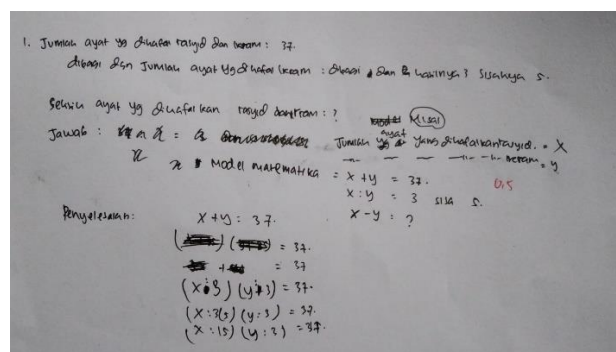 1. Jumlah ayat yg dihafal rasyid dan ikram : 37.
dibagi dgn Jumlah ayat yg dihafal ikram : dibagi dan hasilnya 3 sisanya 5.
Selisih ayat yg dihafalkan rasyid dan ikram : ?
Misal
Jawab : Jumlah ayat yang dihafalkan rasyid. = X
— — — — ikram = y
Model matematika = x + y = 37.
0,5
x : y = 3 sisa 5.
x - y = ?
Penyelesaian : x + y : 37.
= 37.
+ = 37
(x : 3) (y : 3) = 37.
(x : 3(5) (y : 3) = 37.
(x : 15) (y : 3) = 37.